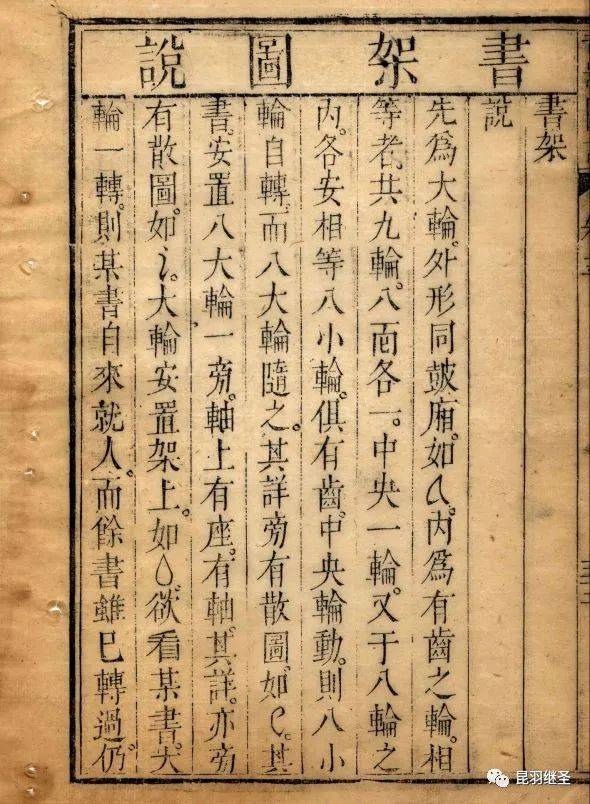 書架圖說
書架
說
先爲大輪。外形同鼓廂。如。內爲有齒之輪。相
等者。共九輪。八面各一。中央一輪。又于八輪之
內。各安相等八小輪。俱有齒。中央輪動。則八小
輪自轉。而八大輪隨之。其詳旁有散圖。如。其
書。安置八大輪一旁。軸上有座。有軸。其詳。亦旁
有散圖。如。大輪安置架上。如。欲看某書。大
輪一轉。則某書自來就人。而餘書雖已轉過。仍
昆羽继圣